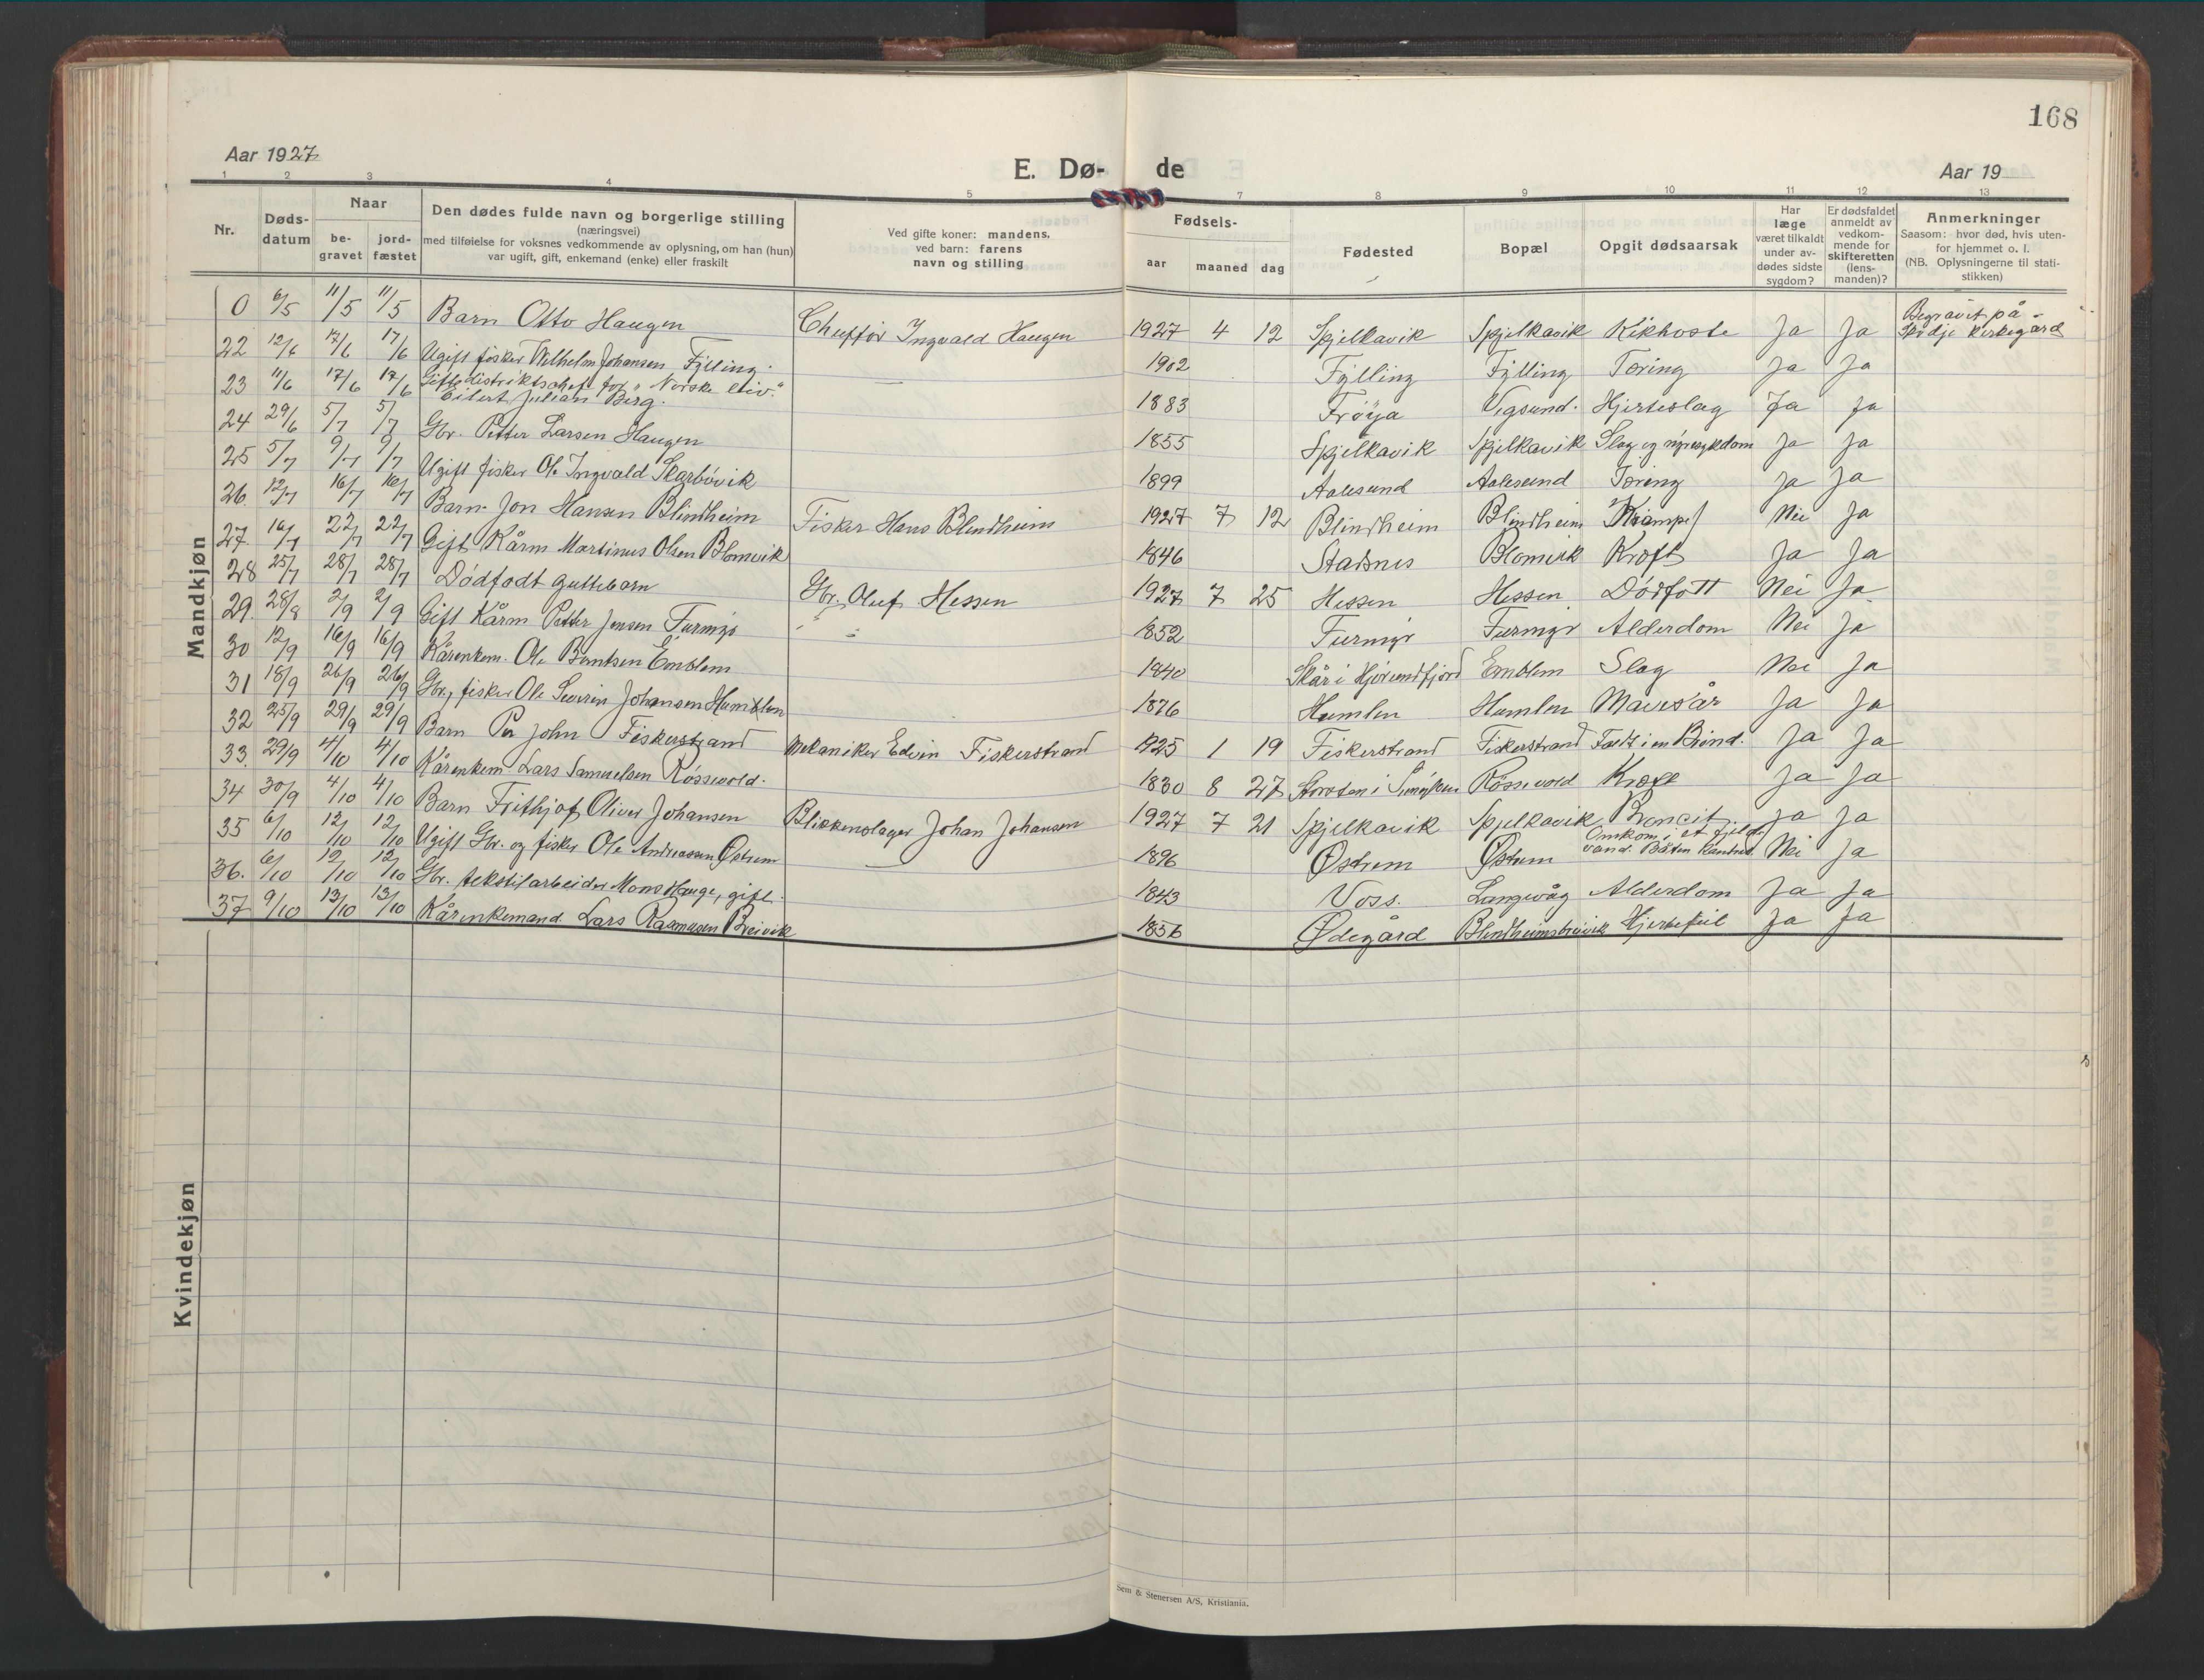 168
Aar 1927
E. Dø- de
Aar 19
1 2 3 4 5 7 8 9 10 11 12 13
Nr.
Døds-
datum
Naar
be-
gravet
jord-
fæstet
Den dødes fulde navn og borgerlige stilling
(næringsvei)
med tilføielse for voksnes vedkommende av oplysning, om han (hun)
var ugift, gift, enkemand (enke) eller fraskilt
Ved gifte koner: mandens,
ved barn: farens
navn og stilling
Fødsels-
aar maaned dag
Fødested
Bopæl
Opgit dødsaarsak
Har
læge
været tilkaldt
under av-
dødes sidste
sygdom?
Er dødsfaldet
anmeldt av
vedkom-
mende for
skifteretten
(lens-
manden)?
Anmerkninger
Saasom: hvor død, hvis uten-
for hjemmet o. l.
(NB. Oplysningerne til stati-
stikken)
Mandkjøn
0 6/5 11/5 11/5 Barn Otto Haugen Chuffør Ingvald Haugen 1927 4 12 Spjelkavik Spjelkavik Kikhoste Ja Ja Begravet på
Skodje kirkegård
22 12/6 17/6 17/6 Ugift fisker Wilhelm Johansen Fylling. 1902 Fylling Fylling Tæring Ja Ja
23 11/6 17/6 17/6 Gift distriktschef for "Norske Liv."
Eilert Julian Berg. — 1883 Frøya Vegsund. Hjerteslag Ja Ja
24 29/6 5/7 5/7 Gbr. Petter Larsen Haugen 1855 Spjelkavik Spjelkavik Slag og nyresykdom Ja Ja
25 5/7 9/7 9/7 Ugift fisker Ole Ingvald Skarbøvik 1899 Aalesund Aalesund Tæring Ja Ja
26. 12/7 16/7 16/7 Barn Jon Hansen Blindheim Fisker Hans Blindheim 1927 7 12 Blindheim Blindheim Krampe Nei Ja
27. 16/7 22/7 22/7 Gift Kårm Martinus Olsen Blomvik 1846 Statsnes Blomvik Kræft Ja Ja
28 25/7 28/7 28/7 Dødfødt guttebarn Gbr. Oluf Hessen 1927 7 25 Hessen Hessen Dødføtt Nei Ja
29. 28/8 2/9 2/9 Gift Kårm Petter Jensen Furmyr 1852 Furmyr Furmyr Alderdom Nei Ja
30 12/9 16/9 16/9 Kårenkem. Ole Berntsen Emblem 1840 Skår i Hjørundfjord Emblem Slag Nei Ja
31 18/9 26/9 26/9 Gbr., fisker Ole Severin Johansen Humblen 1876 Humlen Humlen Mavesår Ja Ja
32 25/9 29/9 29/9 Barn Per John Fiskerstrand Mekaniker Edvin Fiskerstrand 1925 1 19 Fiskerstrand Fiskerstrand Faldt i en Brønd. Ja Ja
33. 29/9 4/10 4/10 Kårenkem. Lars Samuelsen Røssevold. 1830 8 27 i Røssevold Kræft Ja Ja
34 30/9 4/10 4/10 Barn Frithjof Oliver Johansen Blikkenslager Johan Johansen 1927 7 21 Spjelkavik Spjelkavik Broncit Ja Ja
35 6/10 12/10 12/10 Ugift Gbr. og fisker Ole Andreassen Østrem — 1896 Østrem Østrem Omkom i et fjeld-
vand. Båten kantret. Nei Ja
36. 6/10 12/10 12/10 Gbr. tekstilarbeider Mons Hauge, gift. 1843 Voss. Langevåg Alderdom Ja Ja
37 9/10 13/10 13/10 Kårenkemand Lars Rasmussen Breivik 1856 Ødegård Blindheimsbreivik Hjertefeil Ja Ja
Kvindekjøn
Sem & Stenersen A/S, Kristiania.